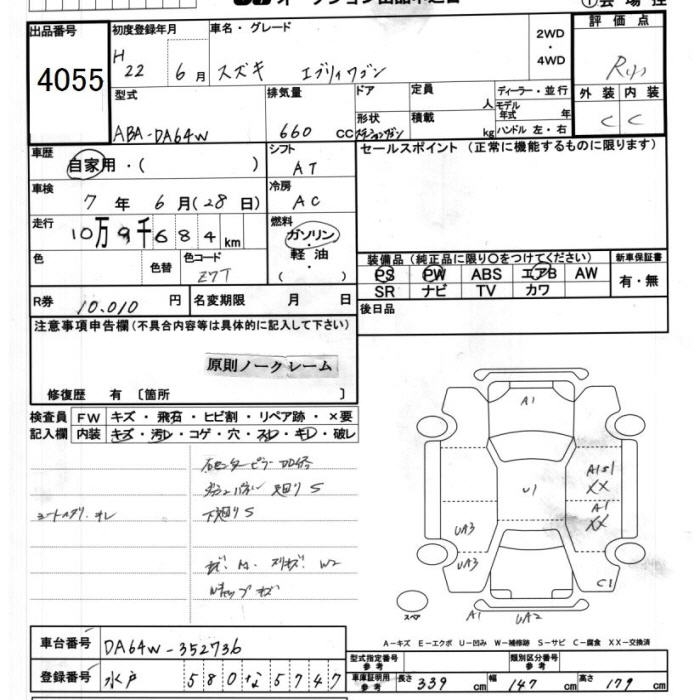 出品番号
4055
初度登録年月
H 22 6月
車名・グレード
スズキ エブリィワゴン
2WD
・
4WD
評価点
R
外装 内装
C C
型式
ABA-DA64W
排気量
660 cc
ドア
形状
ステーションワゴン
定員
人
積載
kg
ディーラー・並行
モデル年式 年
ハンドル 左・右
車歴
自家用・( )
シフト
AT
車検
7年 6月(28日)
冷房
AC
走行
10万9千684km
燃料
ガソリン
・
軽油
( )
色
色替
色コード
Z7T
R券
10,010円
名変期限 月 日
セールスポイント(正常に機能するものに限ります)
装備品(純正品に限り○をつけてください)
PS PW ABS エアB AW
SR ナビ TV カワ
新車保証書
有・無
後日品
注意事項申告欄(不具合内容等は具体的に記入して下さい)
原則ノークレーム
修復歴 有〔箇所 〕
検査員記入欄
FW キズ・飛石・ヒビ割・リペア跡・×要
内装 キズ・汚レ・コゲ・穴・スレ・キレ・破レ
下廻りS
A1
U1
A1S1
XX
A1
XX
UA3
UA3
C1
スペア
A1
UA2
A-キズ E-エクボ U-凹み W-補修跡 S-サビ C-腐食 XX-交換済
車台番号
DA64W-352736
登録番号
水戸 580 な 5747
型式指定番号
参考
類別区分番号
参考
車庫証明用
参考
長さ 339 cm
幅 147 cm
高さ 179 cm